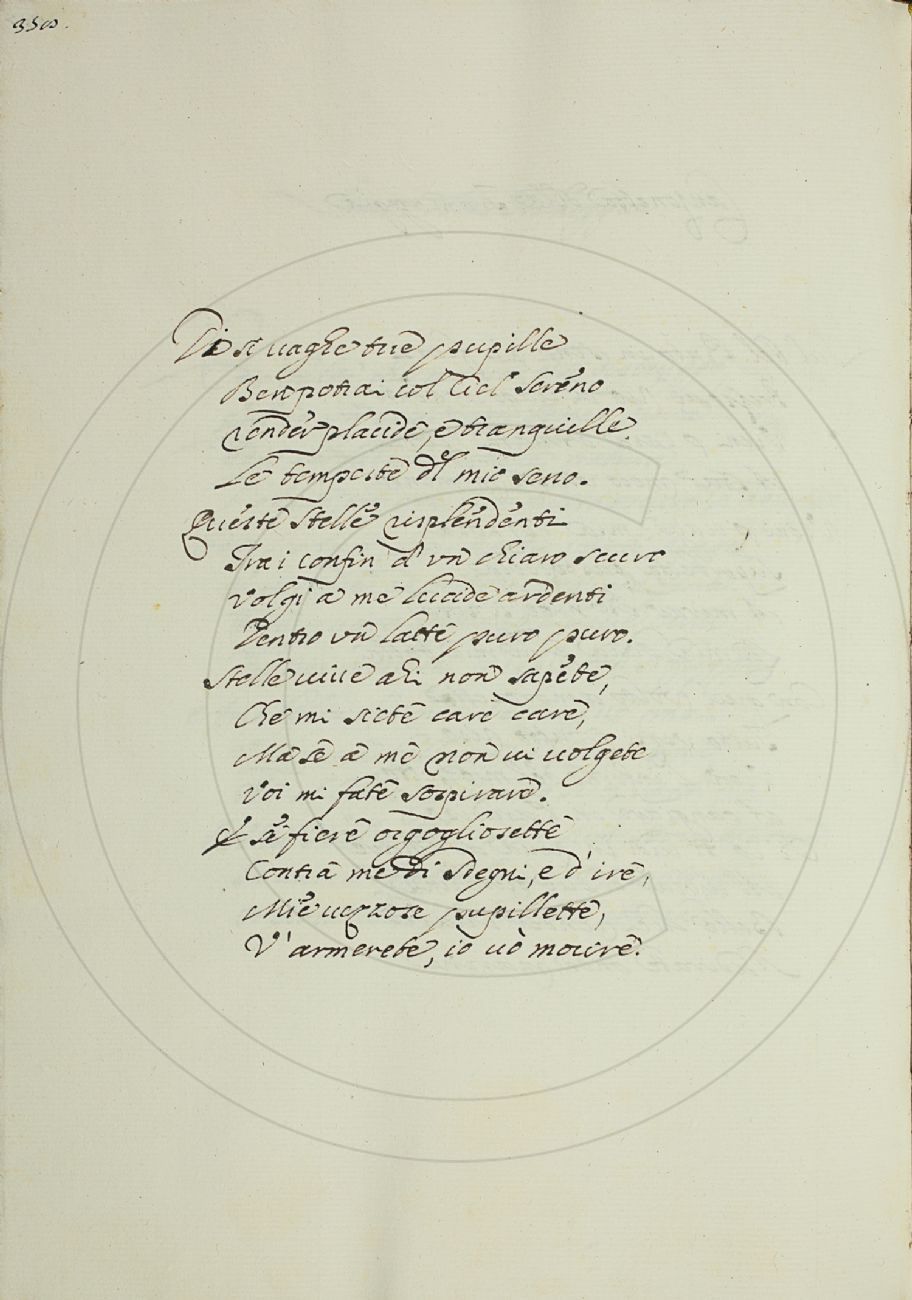 350.
Di sì uaghe tue pupille
Ben potrai col Ciel sereno
render placide, e tranquille
Le tempeste del mio seno.
Queste stelle risplendenti
Tra i confin d'un chiaro scuro
volgi a me lucide ardenti
Dentro un latte puro puro.
Stelle uiue ahi non sapete,
Che mi siete care care,
Ma se a me non ui uolgete
Voi mi fate sospirare.
E se fiere orgogliosette
Contra me di sdegni, e d'ire,
Mie uezzose pupillette,
V'armerete, io uò morire.